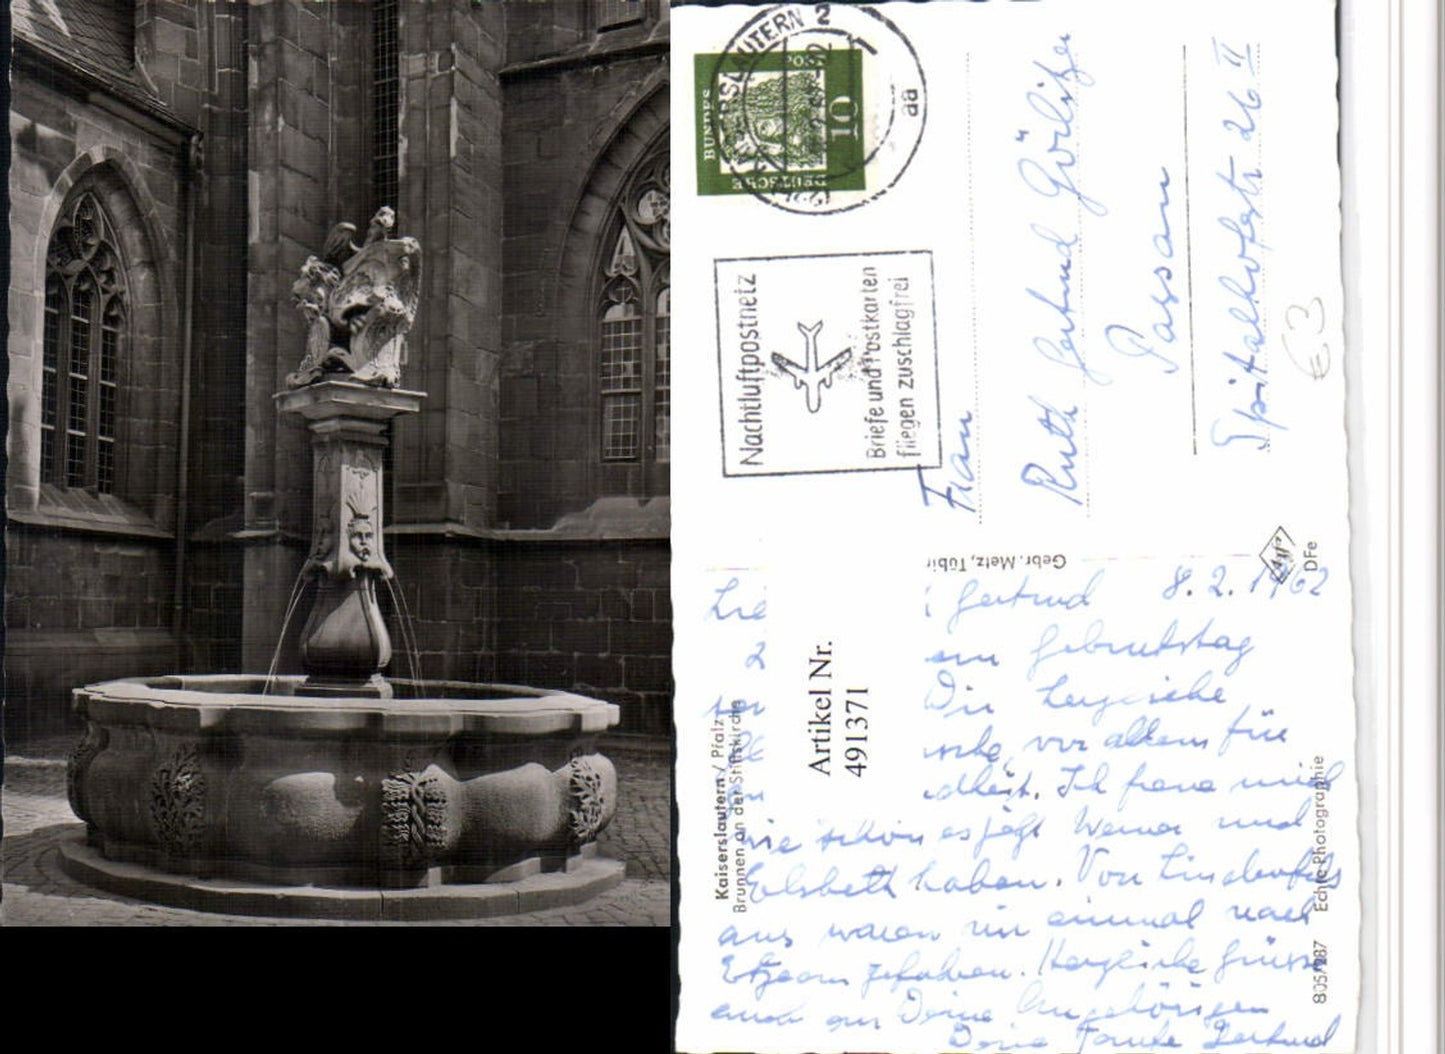 KAISERSLAUTERN 2
aa
DEUTSCHE
BUNDES
POST
10
Nachtluftpostnetz
Briefe und Postkarten
fliegen zuschlagfrei
Frau
Ruth Gertrud Görlitzer
Passau
Spitalhofstr 26 II
€ 3
Gebr. Metz, Tübi
Agfa
DFe
Kaiserslautern / Pfalz
Brunnen an der Stiftskirche
Artikel Nr.
491371
805/287 Echte Photographie
Lie Gertrud 8. 2. 1962
Geburtstag
Dir herzliche
vor allem für
Ich freue mich
wie schön es jetzt Werner und
Elsbeth haben. Von Lindenfels
aus waren wir einmal nach
gefahren. Herzliche Grüsse
auch an Deine Angehörigen
Deine Tante Gertrud